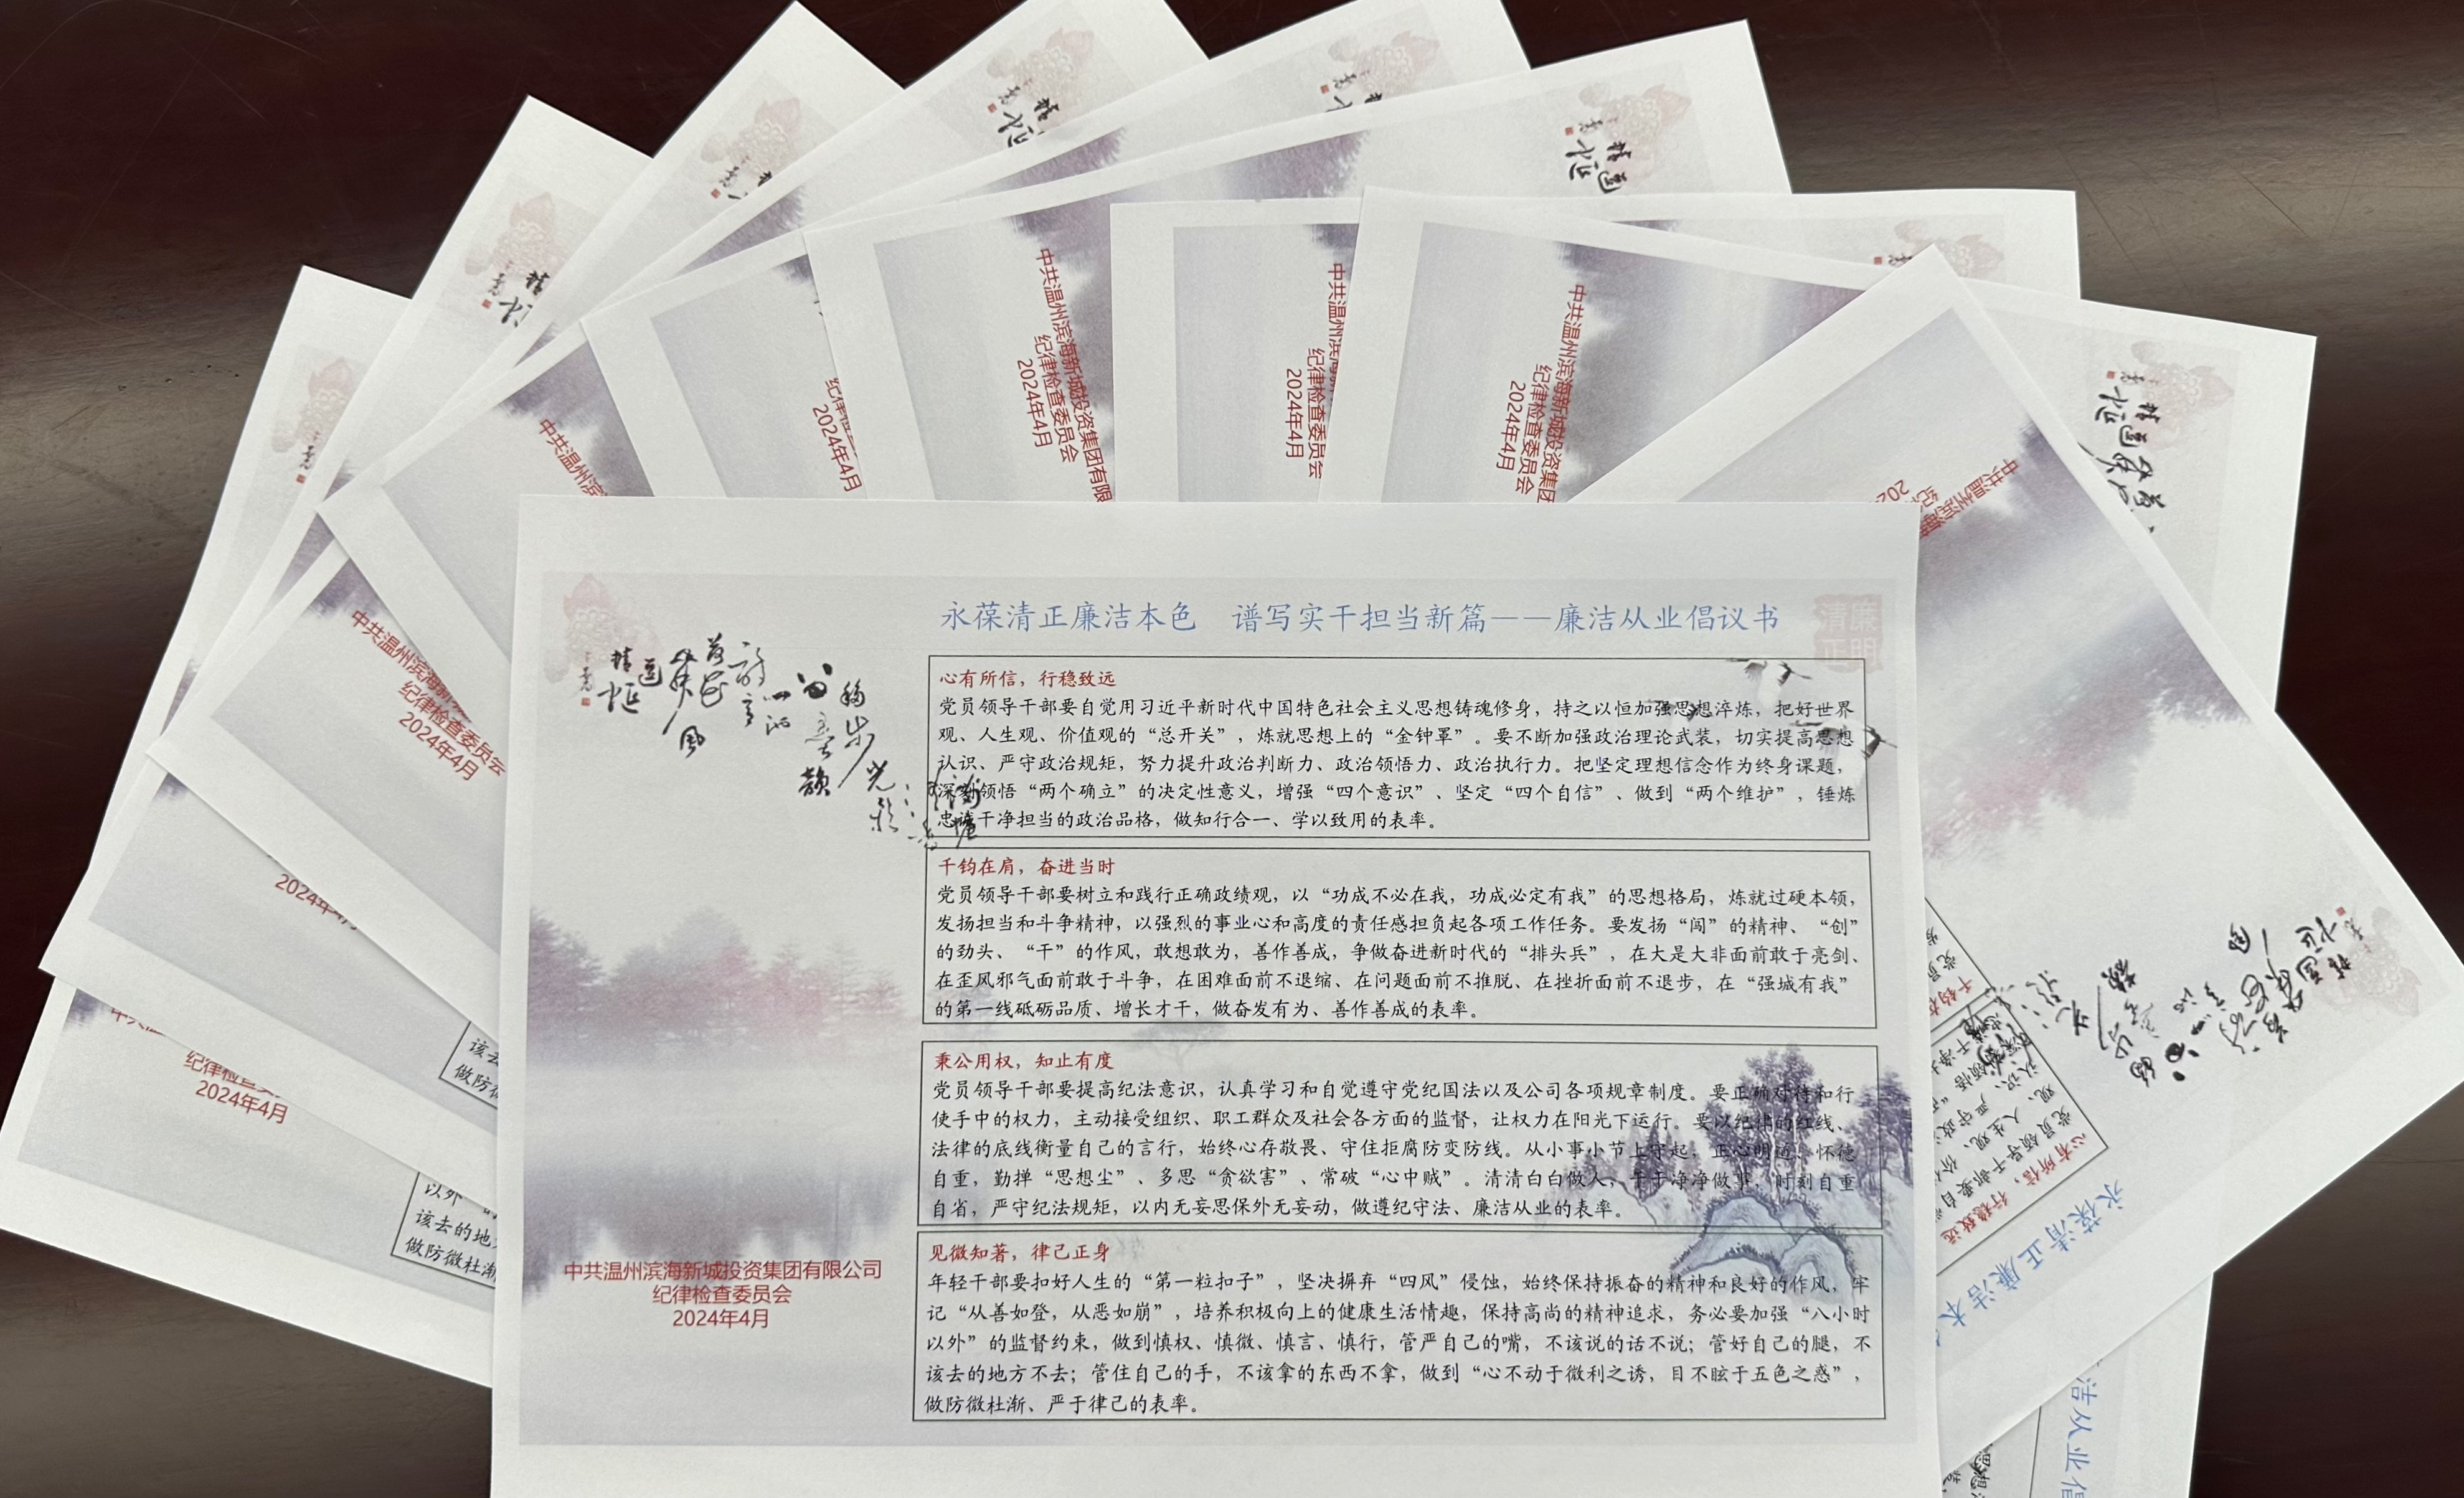 永葆清正廉洁本色 谱写实干担当新篇——廉洁从业倡议书
清廉
正明
心有所信，行稳致远
党员领导干部要自觉用习近平新时代中国特色社会主义思想铸魂修身，持之以恒加强思想淬炼，把好世界
观、人生观、价值观的“总开关”，炼就思想上的“金钟罩”。要不断加强政治理论武装，切实提高思想
认识、严守政治规矩，努力提升政治判断力、政治领悟力、政治执行力。把坚定理想信念作为终身课题，
深刻领悟“两个确立”的决定性意义，增强“四个意识”、坚定“四个自信”、做到“两个维护”，锤炼
忠诚干净担当的政治品格，做知行合一、学以致用的表率。
千钧在肩，奋进当时
党员领导干部要树立和践行正确政绩观，以“功成不必在我，功成必定有我”的思想格局，炼就过硬本领，
发扬担当和斗争精神，以强烈的事业心和高度的责任感担负起各项工作任务。要发扬“闯”的精神、“创”
的劲头、“干”的作风，敢想敢为，善作善成，争做奋进新时代的“排头兵”，在大是大非面前敢于亮剑、
在歪风邪气面前敢于斗争，在困难面前不退缩、在问题面前不推脱、在挫折面前不退步，在“强城有我”
的第一线砥砺品质、增长才干，做奋发有为、善作善成的表率。
秉公用权，知止有度
党员领导干部要提高纪法意识，认真学习和自觉遵守党纪国法以及公司各项规章制度。要正确对待和行
使手中的权力，主动接受组织、职工群众及社会各方面的监督，让权力在阳光下运行。要以纪律的红线、
法律的底线衡量自己的言行，始终心存敬畏、守住拒腐防变防线。从小事小节上守起，正心明道、怀德
自重，勤掸“思想尘”、多思“贪欲害”、常破“心中贼”。清清白白做人，干干净净做事，时刻自重
自省，严守纪法规矩，以内无妄思保外无妄动，做遵纪守法、廉洁从业的表率。
见微知著，律己正身
年轻干部要扣好人生的“第一粒扣子”，坚决摒弃“四风”侵蚀，始终保持振奋的精神和良好的作风，牢
记“从善如登，从恶如崩”，培养积极向上的健康生活情趣，保持高尚的精神追求，务必要加强“八小时
以外”的监督约束，做到慎权、慎微、慎言、慎行，管严自己的嘴，不该说的话不说；管好自己的腿，不
该去的地方不去；管住自己的手，不该拿的东西不拿，做到“心不动于微利之诱，目不眩于五色之惑”，
做防微杜渐、严于律己的表率。
中共温州滨海新城投资集团有限公司
纪律检查委员会
2024年4月
中共温州滨海新城投资集团有限
纪律检查委员会
2024年4月
中共温州滨海
纪律检查委员会
2024年4月
中共温州滨海新城投资集团
纪律检查委员会
2024年4月
2024年4月
中共温州滨海新
纪律检查委员会
2024年4月
2024年4月
纪律检查
2024年4月
以外
该去的地
做防微杜渐
永葆清正廉洁本
洁从业倡